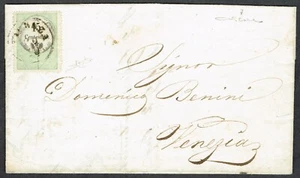 Signor
Domenico Benini
Venezia